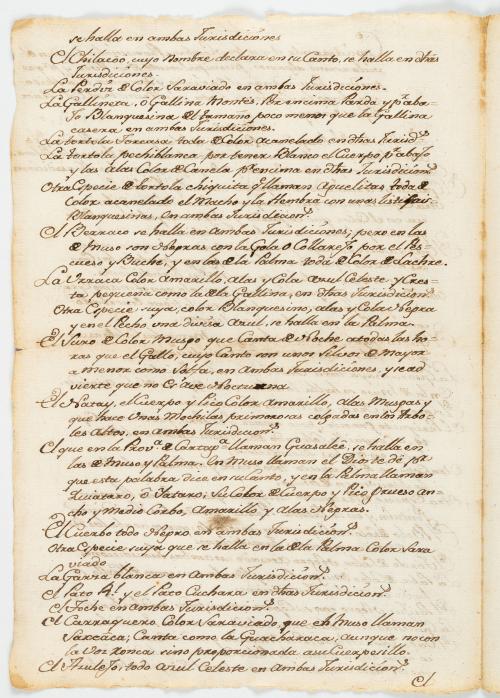 se halla en ambas Jurisdiciones
El Chilacóo, cuyo Nombre declara en su Canto, se halla en dhas
Jurisdiciones.
La Perdiz de Color Saraviado en ambas Jurisdiciones.
La Gallineta, ó Gallina Montés, Por encima Parda y pr aba-
jo Blanquesina de tamaño poco menor que la Gallina
casera en ambas Jurisdiciones.
La tortola Torcasa toda de Color acanelado en dhas Jurisds
La tortola pechiblanca por tener Blanco el Cuerpo pr abajo
y las alas Color de Canela pr encima en dhas Jurisdicions
Otra Especie de tortola chiquita q llaman Aguelitas toda de
Color acanelado el Macho y la Hembra con unas listas
Blanquesinas, en ambas Jurisdicions
El Berraco se halla en ambas Jurisdiciones; pero en las
de Muso son Negras con la Gola o Collarejo por el Pes-
cueso y Buche, y en las de la Palma toda de Color de Lachre.
La Urraca Color Amarillo, alas y Cola Azul Celeste y Cres-
ta pequeña como la de la Gallina, en dhas Jurisdicions
Otra Especie suya, color Blanquesino, alas y Cola Negra
y en el Pecho una divisa Azul, se halla en la Palma.
El Suro de Color Musgo que Canta de Noche a todas las ho-
ras que el Gallo, cuyo Canto son unos Silvos de Mayor
a menor como Solfa, en Ambas Jurisdiciones, y se ad-
vierte que no es ave Nocturna
El Natay, el Cuerpo y Pico Color Amarillo, alas Musgas y
que hace Unas Mochilas primorosas colgadas en los Arbo-
les Altos, en ambas Jurisdicions
El que en la Prova de Cartaga llaman Guasalé, se halla en
las de Muso y Palma. En Muso llaman el Dios te dé pr
que esta palabra dice en su canto, y en la Palma llaman
ó Yataro; su Color de Cuerpo y Pico grueso an-
cho y Medio Corbo, Amarillo y alas Negras.
El Cuerbo todo Negro en ambas Jurisdicions
Otra Especie suya que se halla en la de la Palma Color Sara
viado
La Garza blanca en Ambas Jurisdicions
el Pato Rl y el Pato Cuchara en dhas Jurisdicions
El Toche en ambas Jurisdicions
El Carraguero Color Saraviado, que en Muso llaman
Saxcaca; Canta como la Guacharaca, aunque no con
la Voz ronca sino proporcionada a su Cuerpesillo.
El Azulejo, todo Azul Celeste en Ambas Jurisdicions
El